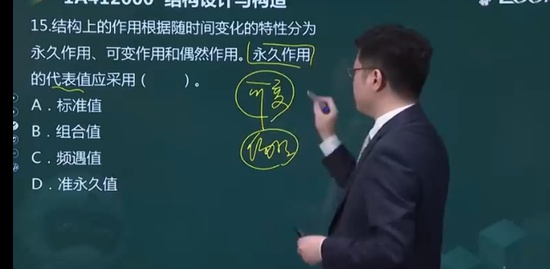 1A412000 结构设计与构造
15.结构上的作用根据随时间变化的特性分为
永久作用、可变作用和偶然作用。永久作用
的代表值应采用（ ）。
A．标准值
B．组合值
C．频遇值
D．准永久值
可变